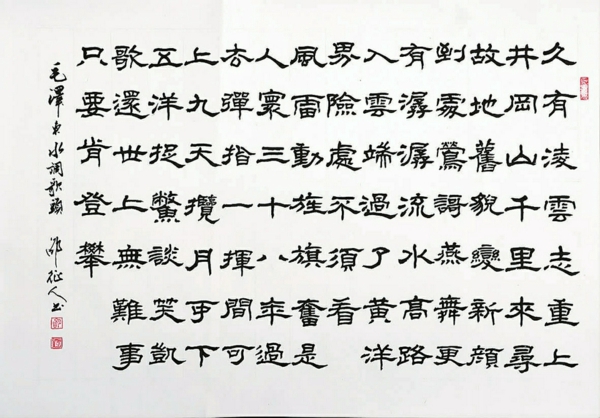 久有凌雲志重上
井岡山千里來尋
故地舊貌變新顏
到處鶯謌燕舞更
有潺潺流水高路
入雲端過了黃洋
界險處不須看
風雷動旌旗奮是
人寰三十八年過
去彈指一揮間可
上九天攬月可下
五洋捉鱉談笑凱
歌還世上無難事
只要肯登攀
毛澤东水調歌頭 征人书